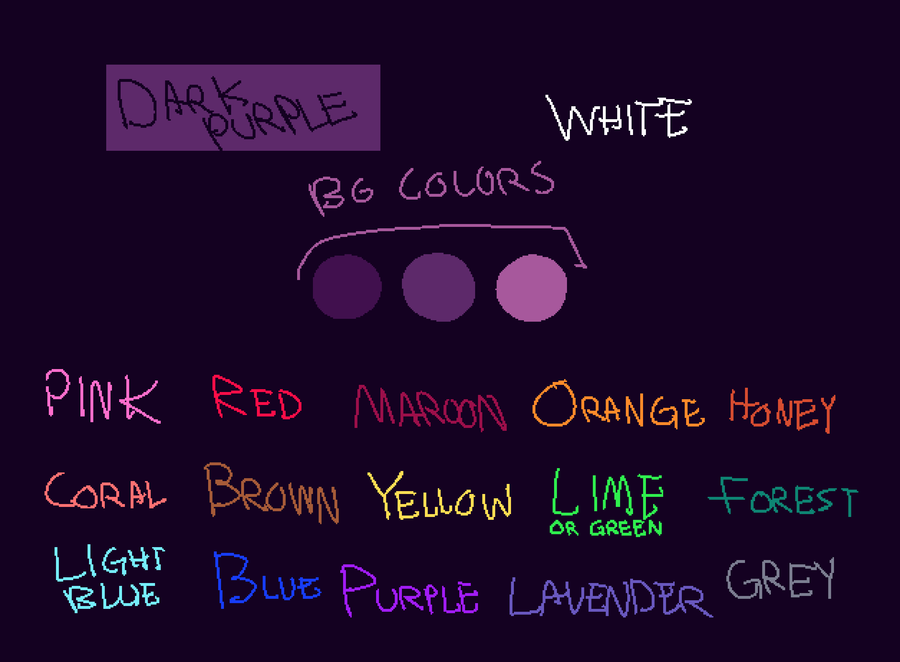 DARK
PURPLE
WHITE
BG COLORS
PINK RED MAROON ORANGE HONEY
CORAL BROWN YELLOW LIME FOREST
OR GREEN
LIGHT
BLUE BLUE PURPLE LAVENDER GREY